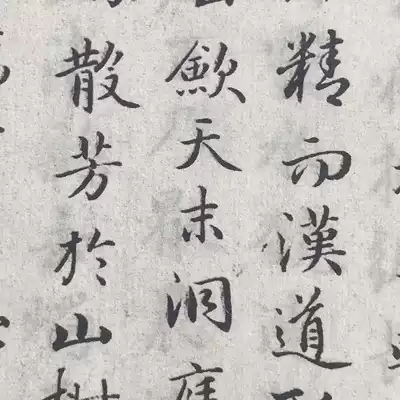 精而漢道
歛天末洞
散芳於山